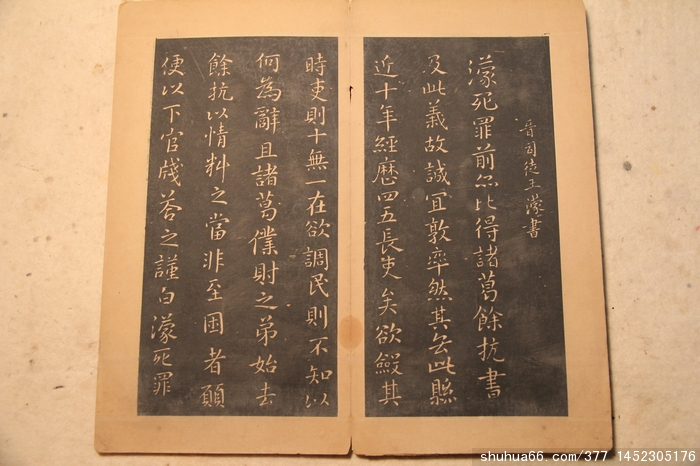 晉司徒王濛書
濛死罪前亦比得諸葛餘杭書
及此義故誠宜敦率然其去此縣
近十年經歷四五長吏矣欲鈠其
時吏則十無一在欲調民則不知以
何為辭且諸葛僕財之弟始去
餘抗以情料之當非至困者願
便以下官牋荅之謹白濛死罪
shuhua66.com/377 1452305176